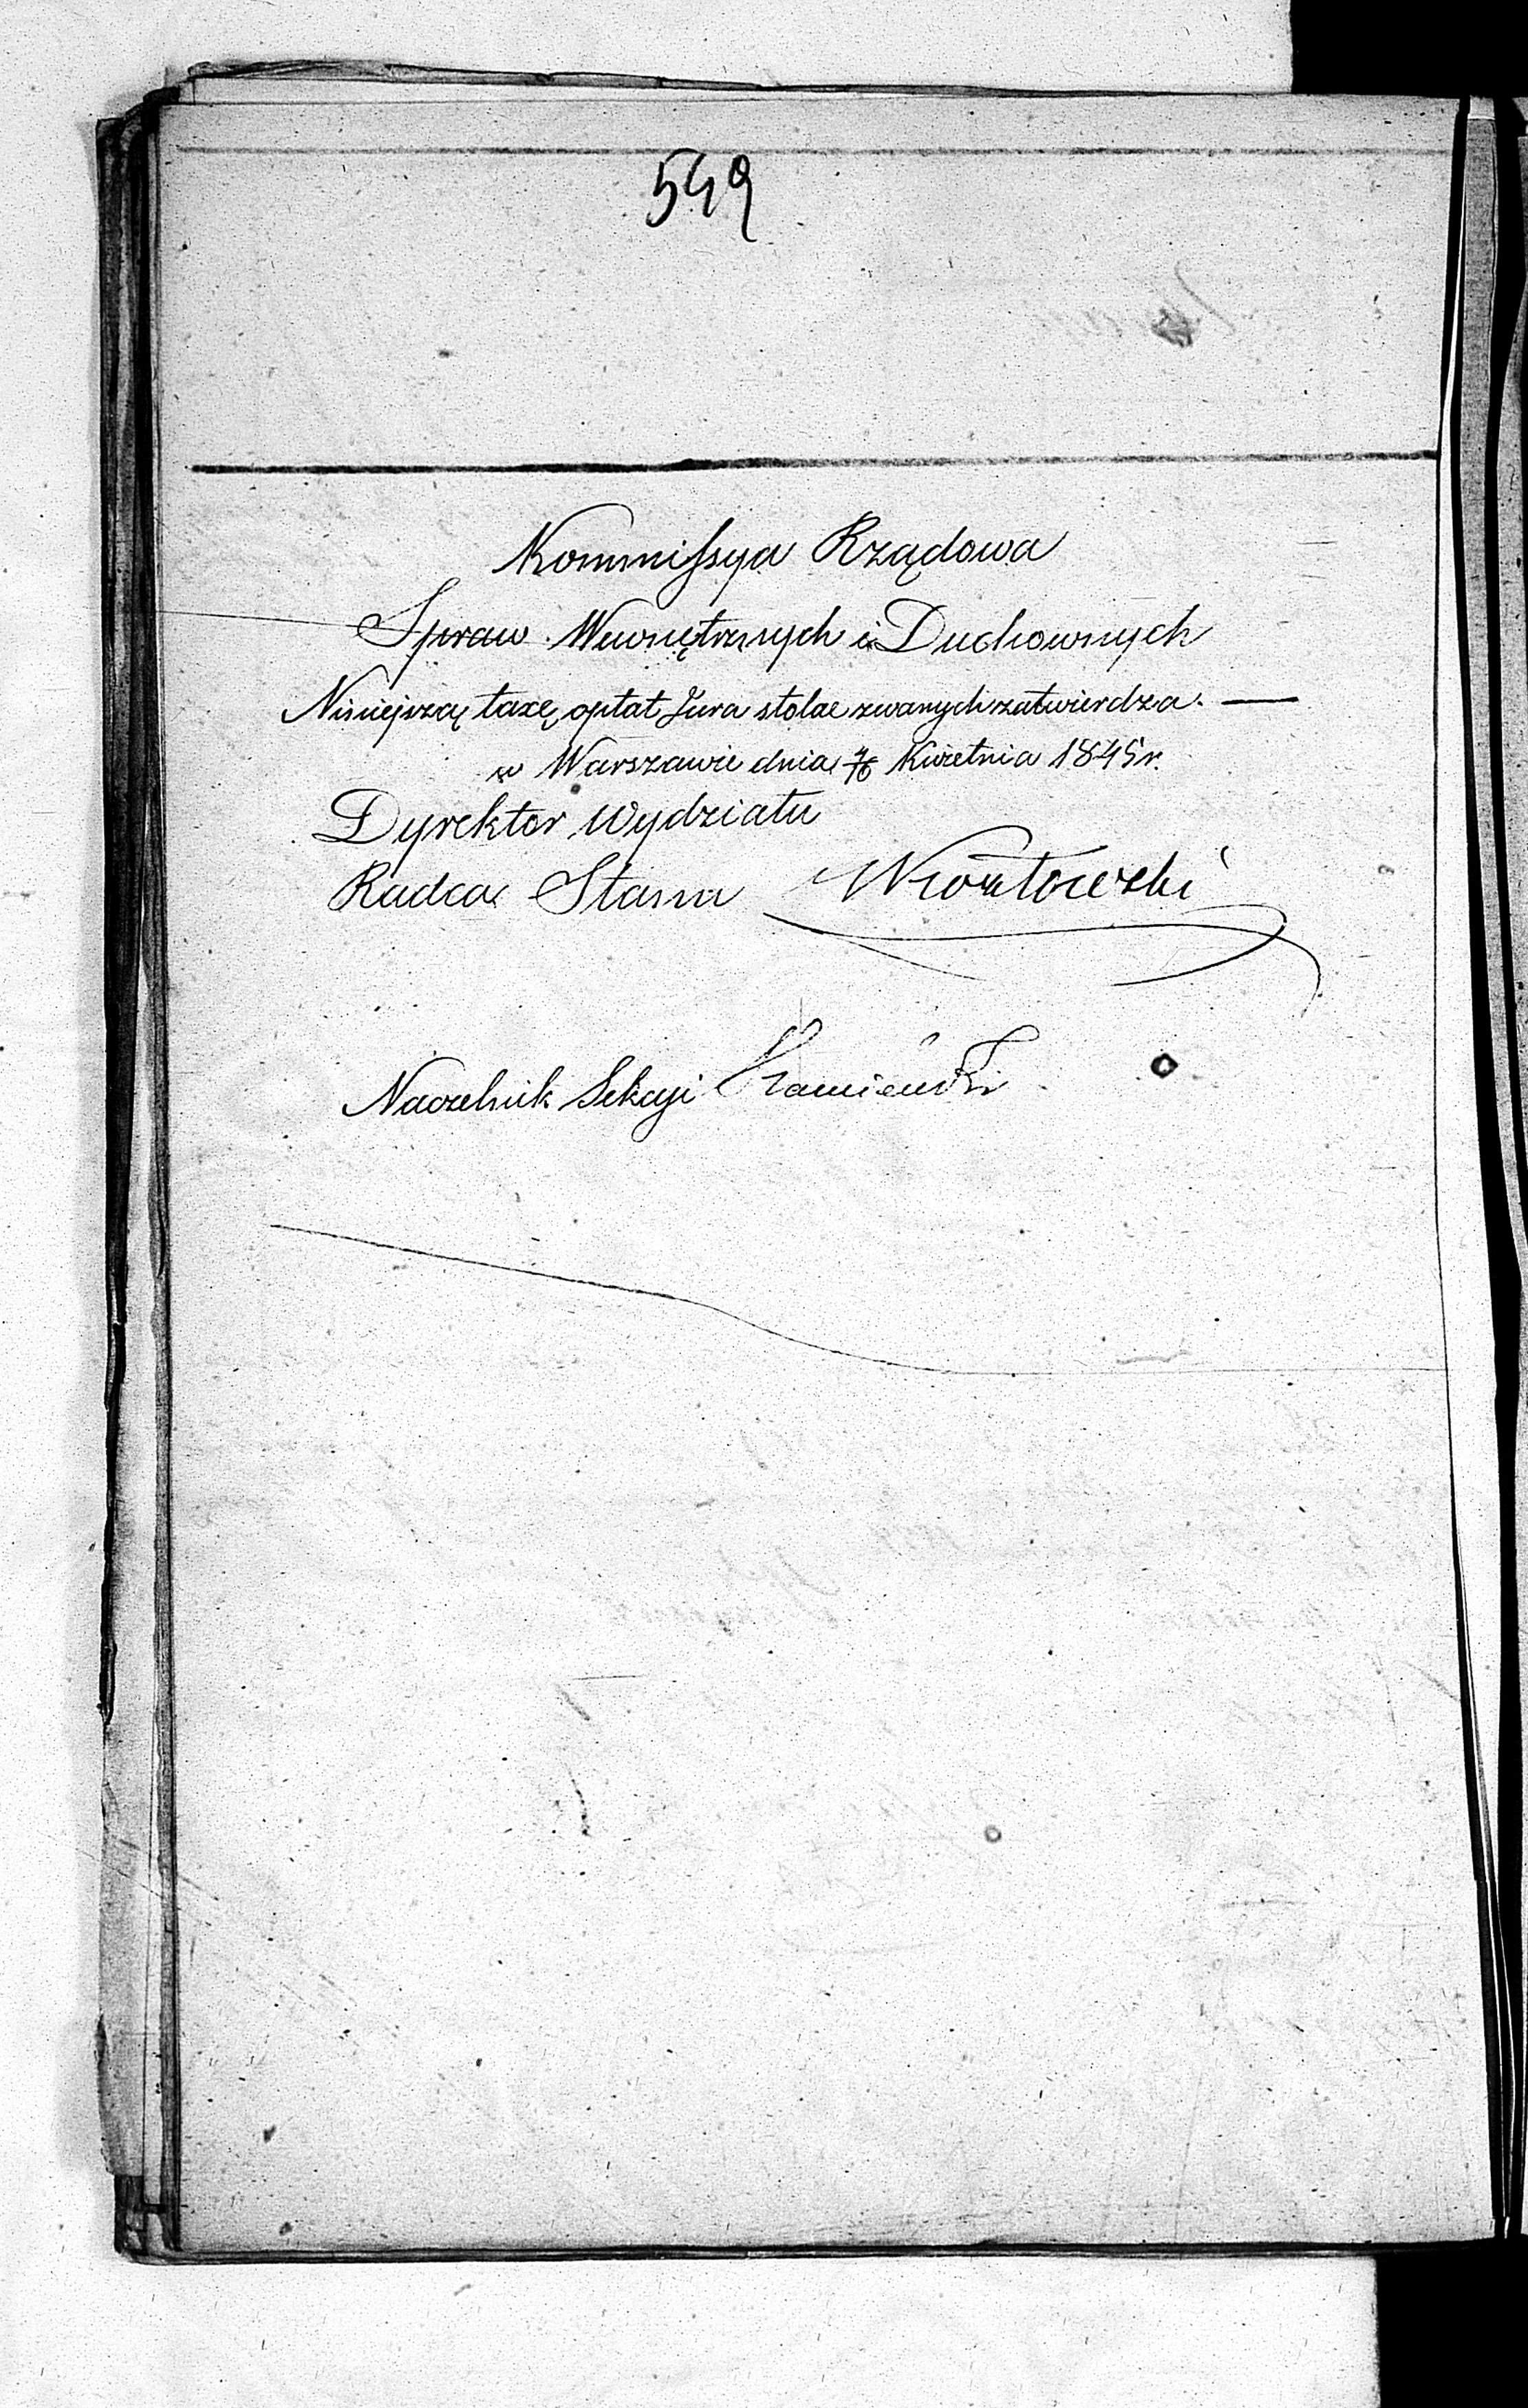 549
Kommissya Rządowa
Spraw Wewnętrznych i Duchownych
Niniejszą taxę opłat Jura stolae zwanych zatwierdza. —
w Warszawie dnia 4/16 Kwietnia 1845 r.
Dyrektor Wydziału
Radca Stanu
Naczelnik Sekcyi Kamieński